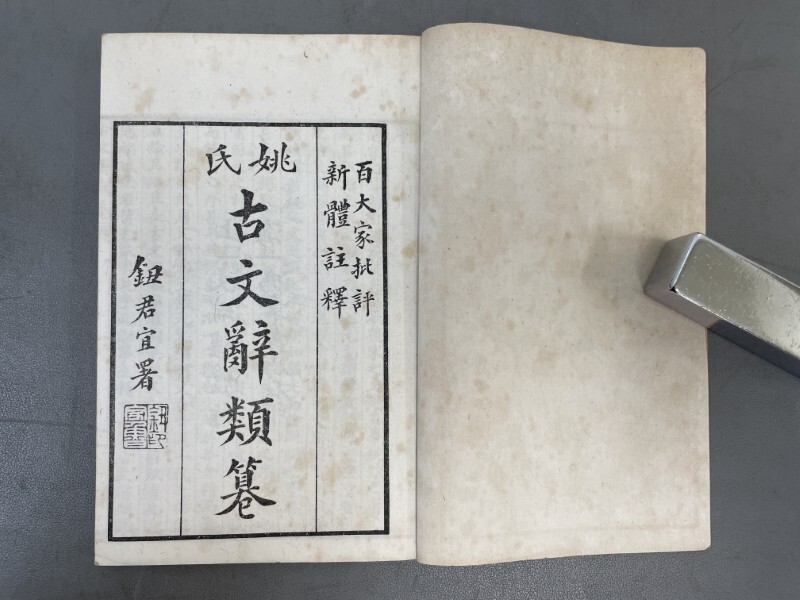 百大家批評
新體註釋
姚氏
古文辭類篹
鈕君宜署